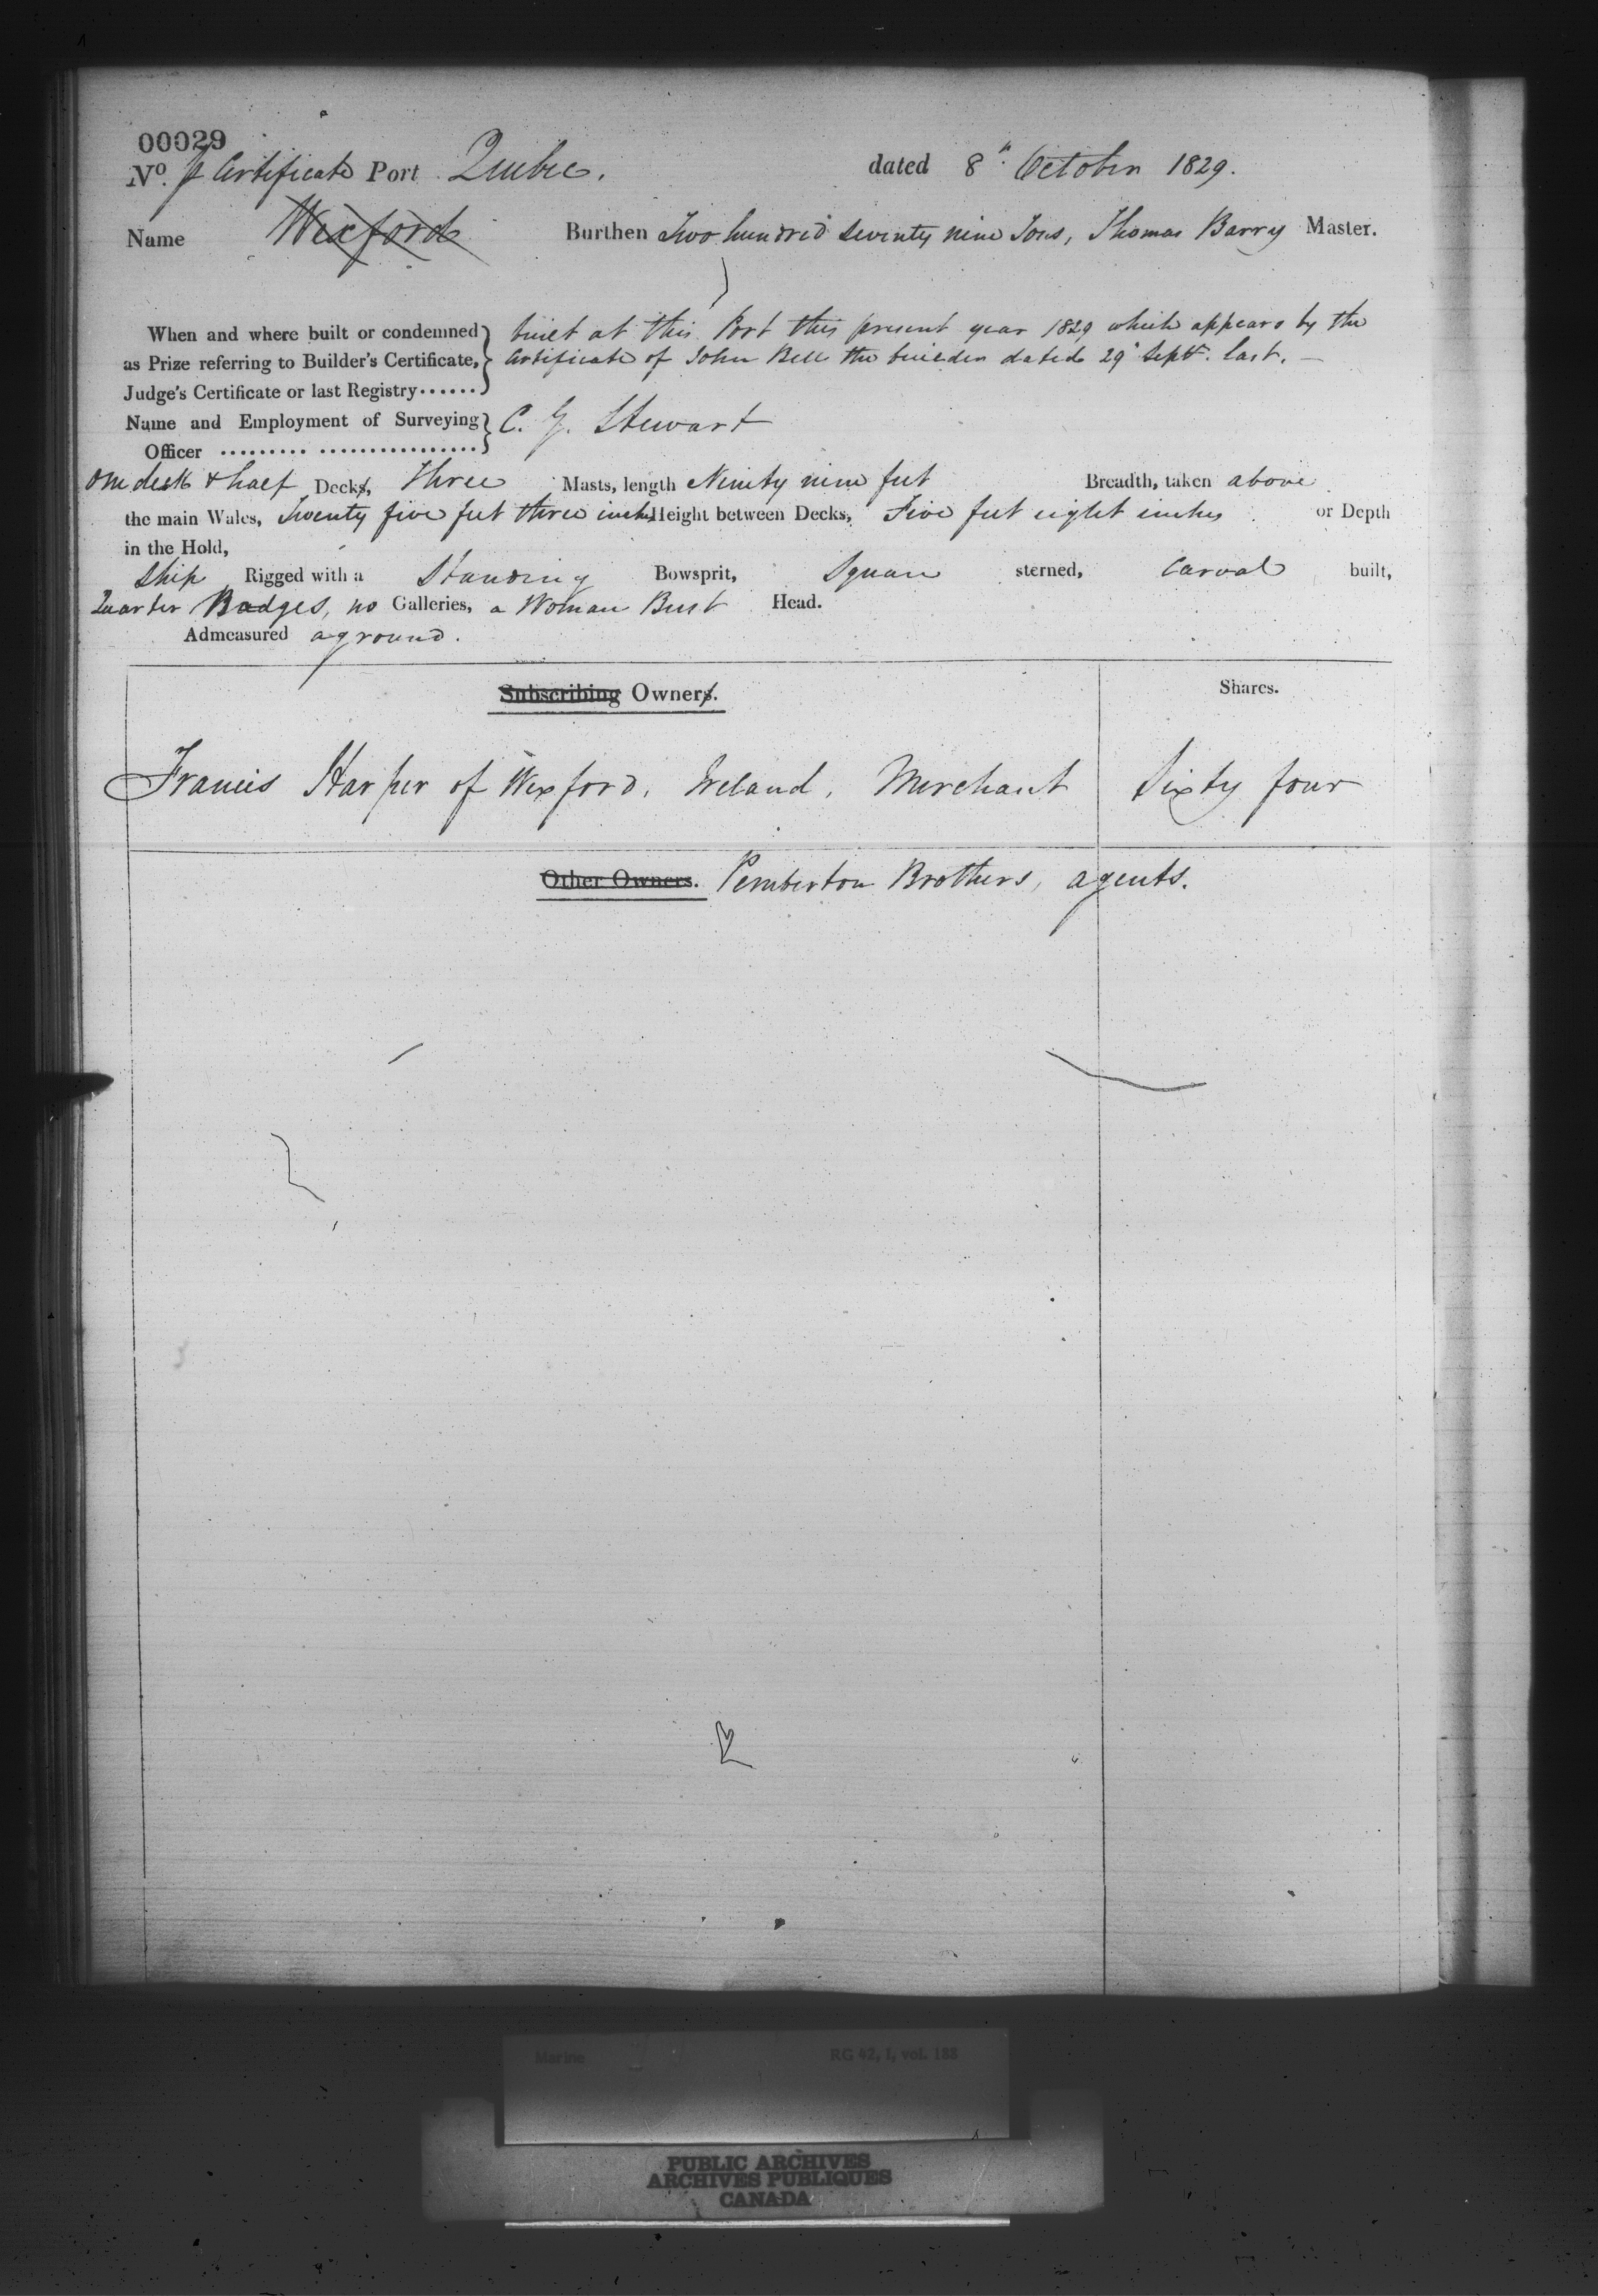 00029
No. p Certificate Port Quebec. dated 8th October 1829.
Name Wexford Burthen Two hundred seventy nine Tons, Thomas Barry Master.
When and where built or condemned built at this Port this present year 1829 which appears by the
as Prize referring to Builder's Certificate, Certificate of John Bell the builder dated 29th Septr. last. —
Judge's Certificate or last Registry......
Name and Employment of Surveying C. G. Stewart
Officer ......... ................
One deck & half Decks, Three Masts, length Ninety nine feet Breadth, taken above
the main Wales, Twenty five feet three inches Height between Decks, Five feet eight inches or Depth
in the Hold,
Ship Rigged with a Standing Bowsprit, Square sterned, Carvel built,
Quarter Badges, no Galleries, a Woman Bust Head.
Admeasured aground.
Subscribing Owners. Shares.
Francis Harper of Wexford, Ireland, Merchant Sixty four
Other Owners. Pemberton Brothers, agents.
Marine RG 42, I, vol. 188
PUBLIC ARCHIVES
ARCHIVES PUBLIQUES
CANADA